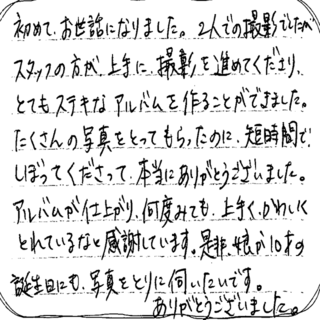 初めて、お世話になりました。2人での撮影でしたが
スタッフの方が、上手に、撮影を進めてくださり、
とてもステキなアルバムを作ることができました。
たくさんの写真をとってもらったのに、短時間で
しぼってくださって、本当にありがとうございました。
アルバムが仕上がり、何度みても、上手く、かわいく
とれているなと感謝しています。是非、娘が10才の
誕生日にも、写真をとりに伺いたいです。
ありがとうございました。